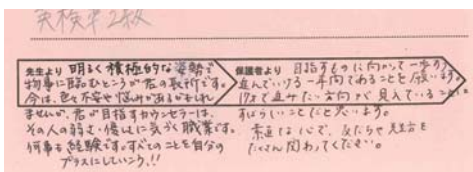 英検準2級
先生より 明るく積極的な姿勢で
物事に臨むところが君の長所です。
今は、色々不安や悩みがあるかもしれ
ませんが、君が目指すカウンセラーは、
その人の弱さ・優しさに気づく職業です。
何事も経験です。すべてのことを自分の
プラスにしていこう!!
保護者より 目指すものに向かって一歩ずつ
進んでいける一年間であることを願います。
17才で進みたい方向が見えていることは
すばらしいことだと思います。
素直な心で、友だちや先生方と
たくさん関わってください。